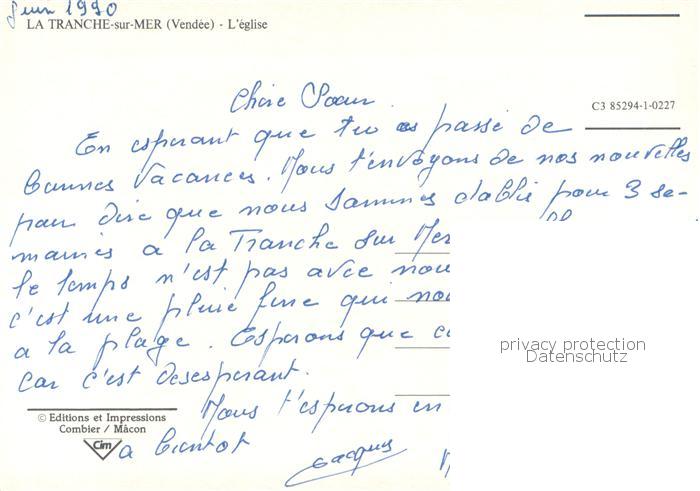 Juin 1990
LA TRANCHE-sur-MER (Vendée) - L'église
C3 85294-1-0227
Chère Soeur
En esperant que tu as passé de
bonnes Vacances. Nous t'envoyons de nos nouvelles
pour dire que nous sommes etablis pour 3 se-
maines a la Tranche sur Mer
le temps n'est pas avec nou
c'est une pluie fine qui nou
a la plage. Esperons que c
car c'est desesperant.
Nous t'esperons en
a bientot
Jacques
privacy protection
Datenschutz
© Editions et Impressions
Combier / Mâcon
Cim